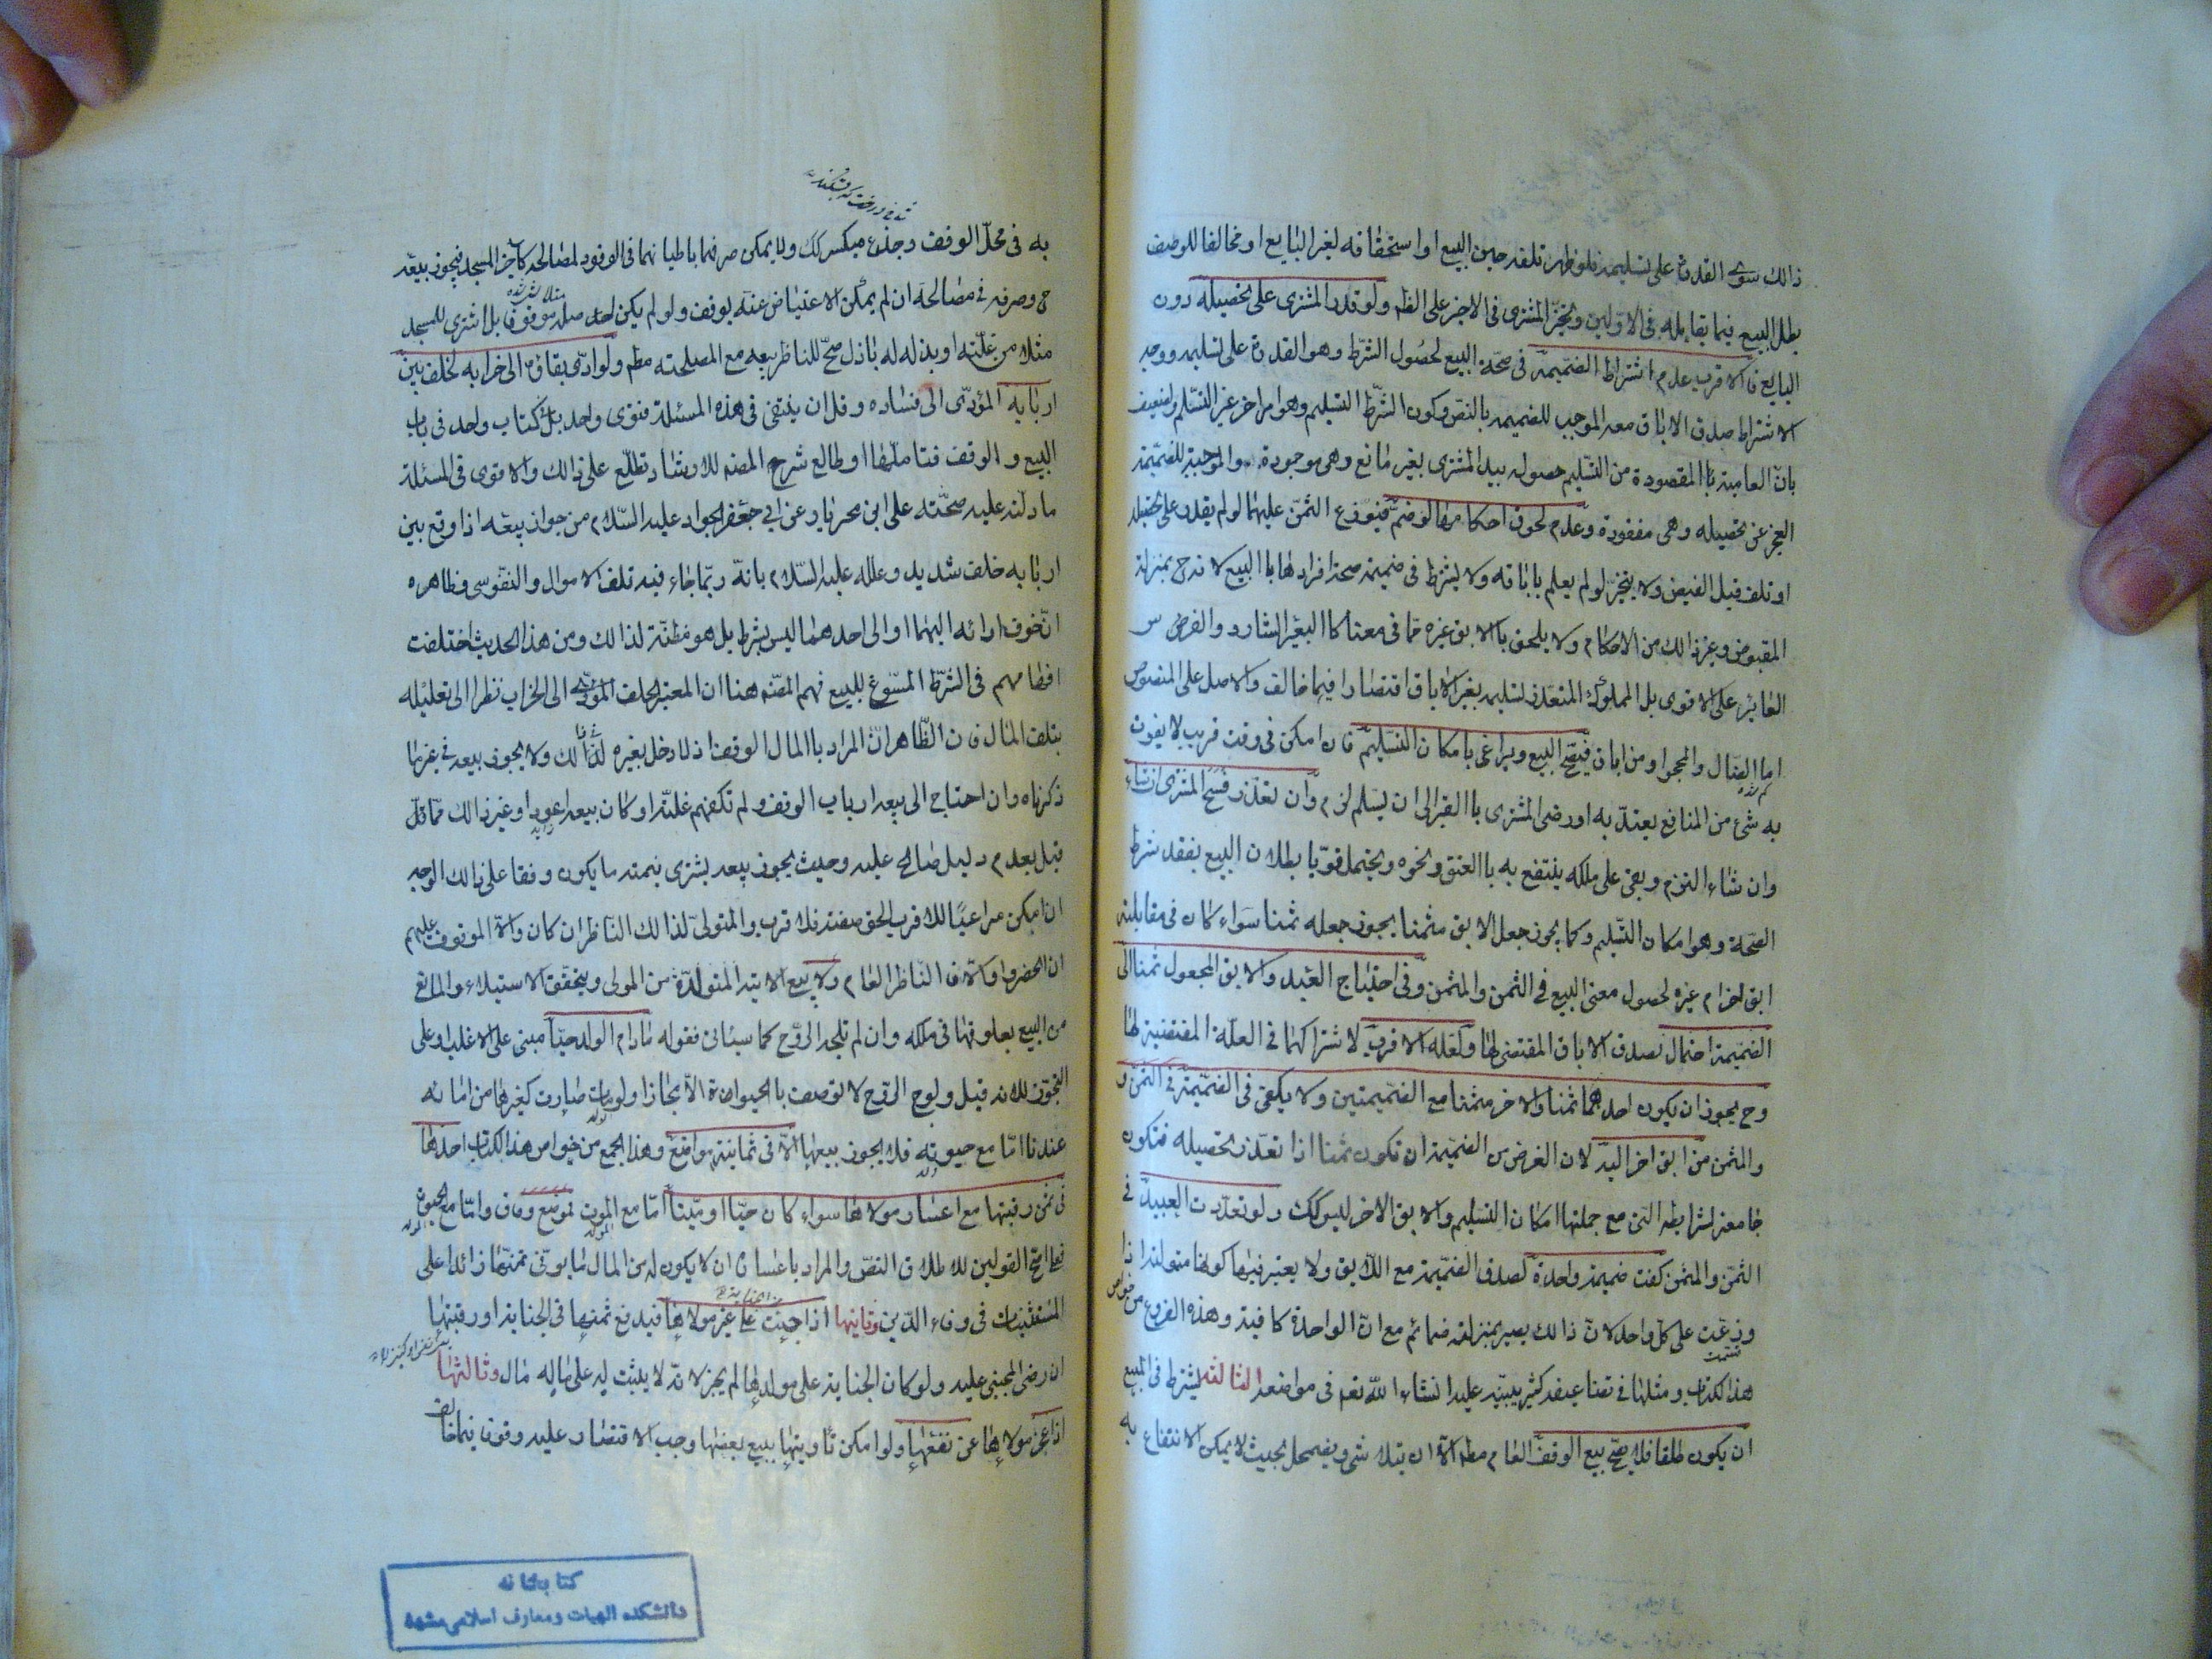 ذالك سوى القدرة على تسليمه فلو ظهر تلفه حين البيع او استحقاقه لغير البايع او مخالفا للوصف
بطل البيع فيما يقابله فى الاولين وتخير المشترى فى الاخير على الظم ولو قدر المشترى على تحصيله دون
البايع فالاقرب عدم اشتراط الضميمة فى صحة البيع لحصول الشرط وهو القدرة على تسليمه ووجه
الاشتراط صدق الاباق معه الموجب للضميمه بالنص وكون الشرط التسليم وهو امر اخر غير التسلم ويضعف
بان الغاية المقصودة من التسليم حصوله بيد المشترى بغير مانع وهى موجودة والموجبة للضميمة
العجز عن تحصيله وهى مفقودة وعدم لحوق احكامها لو ضم فيوزع الثمن عليهما لو لم يقدر على تحصيله
او تلف قبل القبض ولا يتخير لو لم يعلم باباقه ولا يشترط فى ضميمته صحة افرادها باالبيع لانه ح بمنزلة
المقبوض وغير ذالك من الاحكام ولا يلحق باالابق غيره مما فى معناه كاالبعير الشارد والفرس
الغاير على الاقوى بل المملوك المتعذر تسليمه بغير الاباق اقتصارا فيما خالف والاصل على المنصوص
اما الضال والمجحود من اباق فيصح البيع ويراعى بامكان التسليم فان امكن فى وقت قريب لا يفوت
به شئ من المنافع يعتد به او رضى المشترى باالصبر الى ان يسلم لزم وان تعذر فسخ المشترى ان شاء
وان شاء التزم وبقى على ملكه ينتفع به باالعتق ونحوه ويحتمل قويا بطلان البيع بفقد شرط
الصحة وهو امكان التسليم وكما يجوز جعل الابق مثمنا يجوز جعله ثمنا سواء كان فى مقابلته
ابق اخر ام غيره لحصول معنى البيع فى الثمن والمثمن وفى احتياج العبد والابق المجعول ثمنا الى
الضميمة احتمال لصدق الاباق المقتضى لها ولعله الاقرب لاشتراكهما فى العلة المقتضية لها
وح يجوز ان يكون احدهما ثمنا والاخر مثمنا مع الضميمتين ولا يكفى فى الضميمة فى الثمن و
والمثمن من ابق اخر اليه لان الغرض من الضميمة ان تكون ثمنا اذا تعذر تحصيله فتكون
جامعة لشرايطه التى مع جملتها امكان التسليم والابق الاخر ليس كك ولو تعددت العبيد فى
الثمن والمثمن كفت ضميمة واحدة لصدق الضميمة مع الابق ولا يعتبر فيها كونها متمولة اذا
وزعت على كل واحد لان ذالك يصير بمنزلة ضمائم مع ان الواحدة كافية وهذه الفروع من خواص
هذا الكتاب ومثلها فى تضاعيفه كثير يتنبه عليه انشاء الله تعم فى مواضعه الثالثه يشترط فى المبيع
ان يكون طلقا فلا يصح بيع الوقف العام مطم الا ان يتلاشى ويضمحل بحيث لا يمكن الانتفاع به
به فى محل الوقف وجذع منكسر كك ولا يمكن صرفهما باطيانهما فى الوقود لمصالحه كاجر المسجد فيجوز بيعه
ح وصرفه فى مصالحه ان لم يمكن الاعتياض عنه بوقف ولو لم يكن اصله موقوفا بل اشترى للمسجد
مثلا من غلته او بذله له باذل صح للناظر بيعه مع المصلحته مطم ولو ادى بقاؤه الى خرابه لخلف بين
اربابه المؤدى الى فساده وقل ان يتفق فى هذه المسئلة فتوى واحد بل كتاب واحد فى باب
البيع والوقف فتاملها او طالع شرح المصنه للارشاد تطلع على ذالك والاقوى فى المسئلة
ما دلت عليه صحته على ابن مهزيار عن ابي جعفر الجواد عليه السلام من جواز بيعه اذا وقع بين
اربابه خلف شديد وعلله عليه السلام بانه ربما جاء فيه تلف الاموال والنفوس وظاهره
ان خوف ادائه اليهما او الى احدهما ليس بشرط بل هو مظنة لذالك ومن هذا الحديث اختلفت
افهامهم فى الشرط المسوغ للبيع ففهم المصنه هنا ان المعتبر الخلف المؤدى الى الخراب نظرا الى تعليله
بتلف المال فان الظاهر ان المراد باالمال الوقف اذ لا دخل بغيره لذالك ولا يجوز بيعه فى غير ما
ذكرناه وان احتاج الى بيعه ارباب الوقف ولم تكفهم غلته او كان بيعه اعود او غير ذالك مما قيل
قيل بعدم دليل صالح عليه وحيث يجوز بيعه يشترى بثمنه ما يكون وقفا على ذالك الوجه
ان امكن مراعيا للاقرب الى صفته فلاقرب والمتولى لذالك الناظر ان كان والا الموقوف عليهم
ان انحصروا والا فالناظر العام ولا بيع الامة المتولدة من المولى ويتحقق الاستيلاء والمانع
من البيع بعلوقها فى ملكه وان لم تلجه الروح كما سيئاتى فقوله مادام الولد حيا مبنى على الاغلب او على
التجوز لانه قبل ولوج الروح لا توصف باالحيوة الا مجازا ولو مات صارت كغيرها من امائه
عندنا اما مع حيوته فلا يجوز بيعها الا فى ثمانية مواضع وهذا الجمع من خواص هذا الكتاب احدها
فى ثمن رقبتها مع اعسار مولاها سواء كان حيا او ميتا اما مع الموت فموضع وفاق واما مع الحيوة
فعلى اصح القولين للاطلاق النص والمراد باعساره ان لا يكون له من المال ما يوفى ثمنها زائدا على
المستثنيات فى وفاء الدين وثانيها اذا جنت على غير مولاها فيدفع ثمنها فى الجناية او رقبتها
ان رضى المجنى عليه ولو كان الجناية على مولاها لم يجز لانه لا يثبت له على ماله مال وثالثها
اذا عجز مولاها عن نفقتها ولو امكن تاديتها ببيع بعضها وجب الاقتصار عليه وقوفا فيما خالف
كتابخانه
دانشکده الهیات و معارف اسلامی مشهد